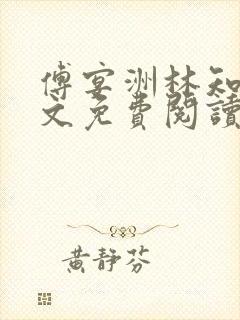 傅宴洲林知
文免費閱讀
黃靜芬